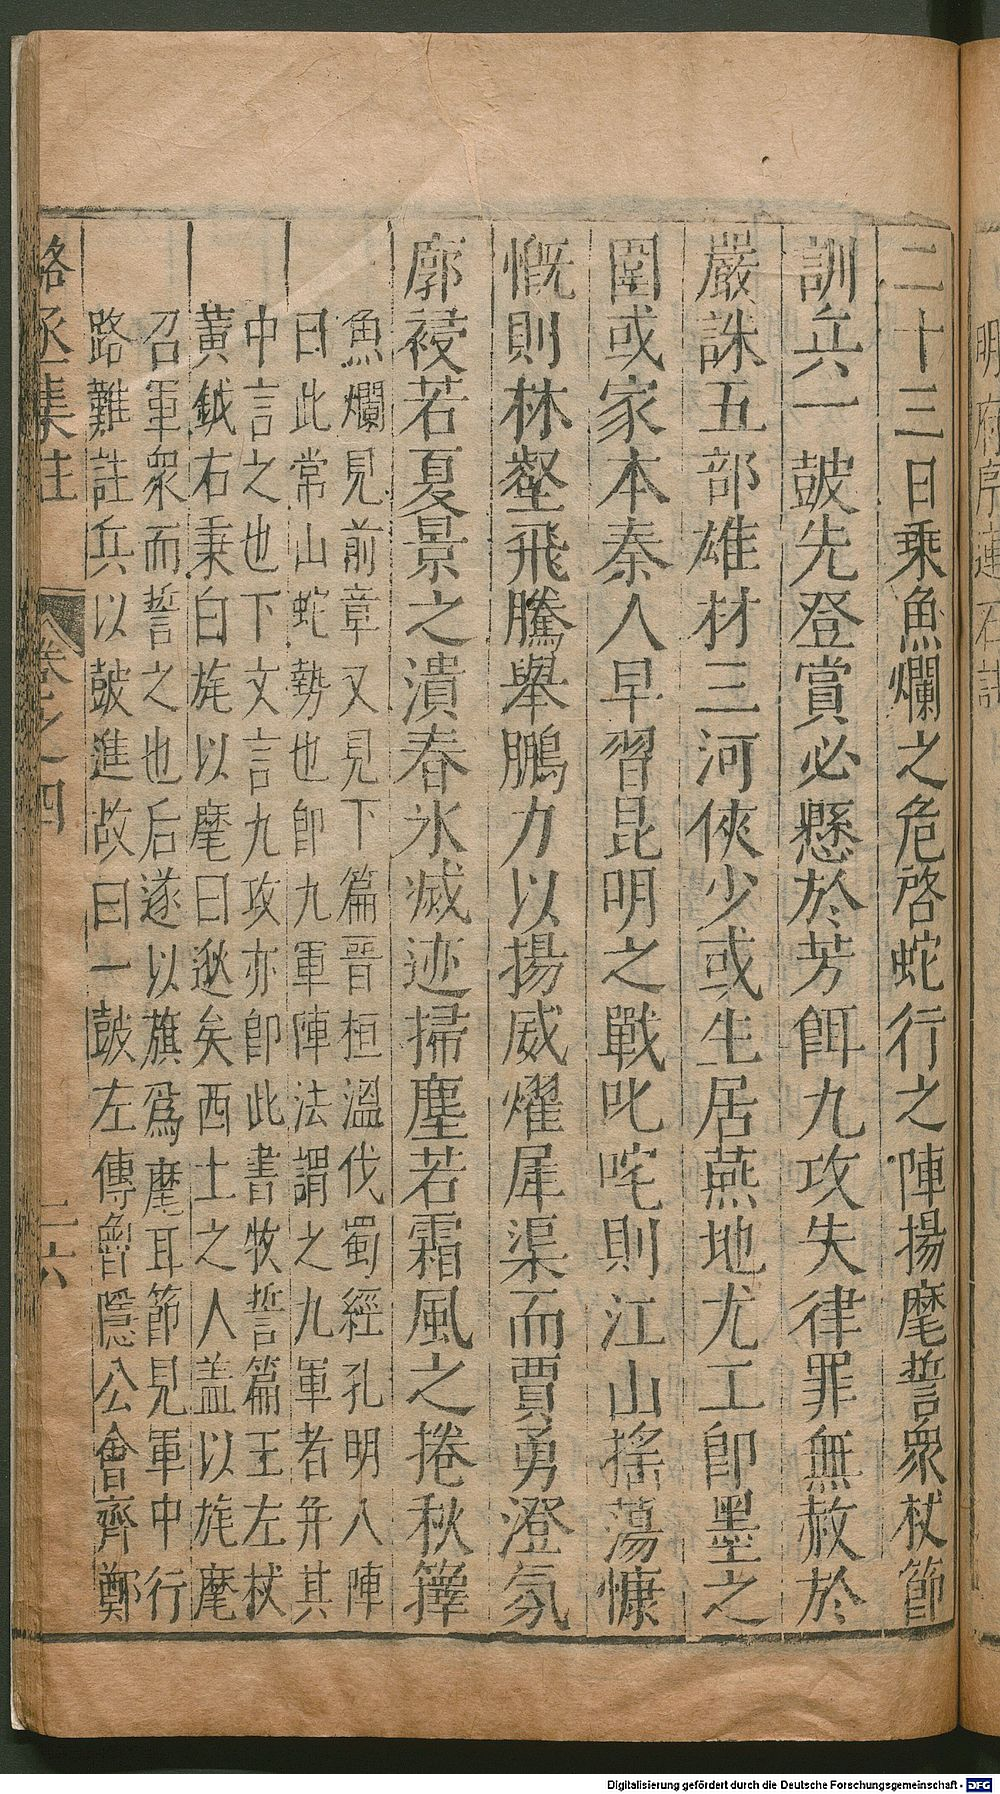 二十三日乘魚爛之危啓蛇行之陣揚麾誓衆杖節
訓兵一鼓先登賞必懸於芳餌九攻失律罪無赦於
嚴誅五部雄材三河俠少或生居燕地尤工即墨之
圍或家本秦人早習昆明之戰叱咤則江山搖蕩慷
慨則林壑飛騰舉鵬力以揚威燿犀渠而賈勇澄氛
廓祲若夏景之潰春氷滅迹掃塵若霜風之捲秋籜
魚爛見前章又見下篇晉桓溫伐蜀經孔明八陣
曰此常山蛇勢也即九軍陣法謂之九軍者并其
中言之也下文言九攻亦即此書牧誓篇王左杖
黃鉞右秉白旄以麾曰逖矣西土之人盖以旄麾
召軍衆而誓之也后遂以旗爲麾耳節見軍中行
路難註兵以鼓進故曰一鼓左傳魯隱公會齊鄭
駱丞集註 卷之四 二六
明府序蓮石
Digitalisierung gefördert durch die Deutsche Forschungsgemeinschaft - DFG